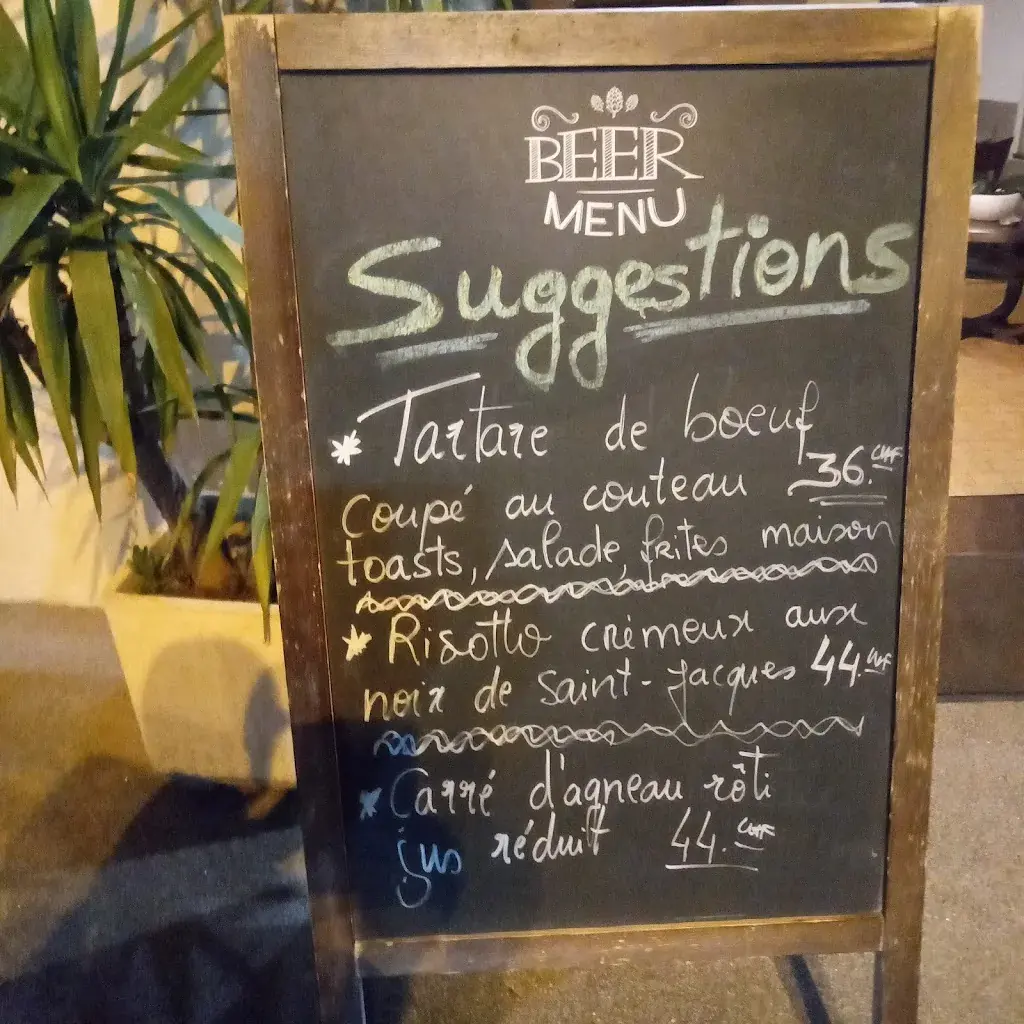 BEER
MENU
Suggestions
* Tartare de boeuf
coupé au couteau 36.CHF
toasts, salade, frites maison
* Risotto crémeux aux
noix de Saint-Jacques 44.CHF
* Carré d'agneau rôti
jus réduit 44.CHF